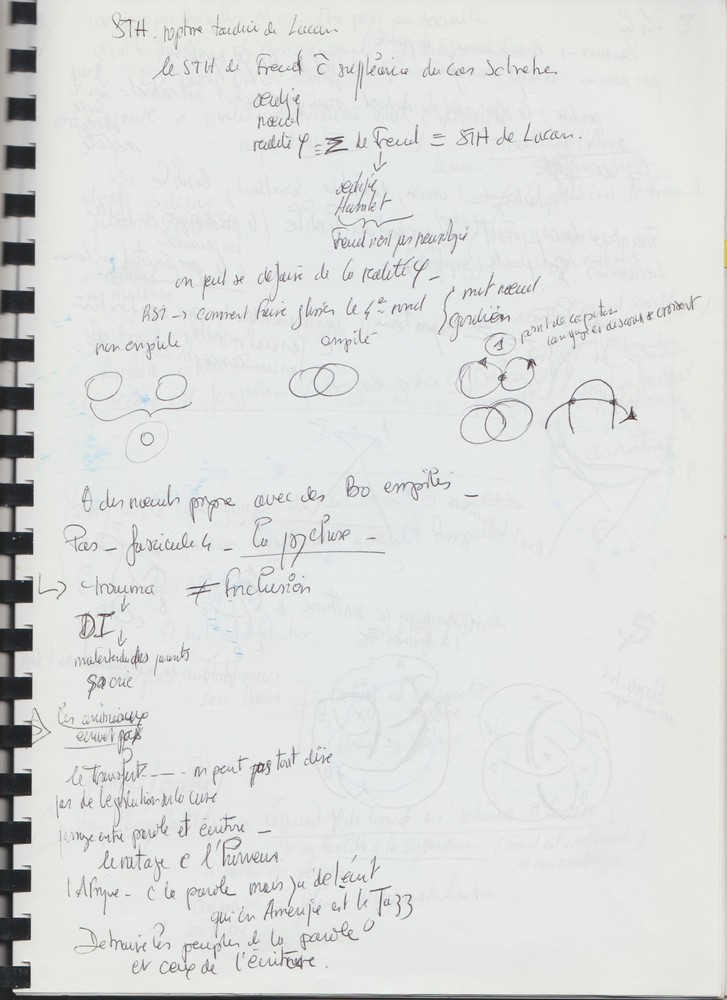 STH. rupture tardive de Lacan
le STH de Freud c̄ suppléance du cas Schreber
œdipe
nœud
réalité φ = Σ de Freud = STH de Lacan.
↓
œdipe
Hamlet
Freud n'est pas
on peut se défaire de la réalité φ _
RSI → comment faire glisser le 4e rond
mot nœud
gordien
non empilé
empilé
① point de capiton
langage et discours se croisent
des nœuds propre avec des Bo empilés _
Pas _ fascicule 4 _ La psychose _
trauma ≠ Forclusion
DI
malentendu des parents
les animaux
écrivent pas
le transfert ---- on peut pas tout dire
pas de législation sur la cure
passage entre parole et écriture _
le ratage c l'Humeur
l'Afrique _ c la parole mais ya de l'écrit
qui en Amérique est le Jazz
Détruire les peuples de la parole
et ceux de l'écriture.